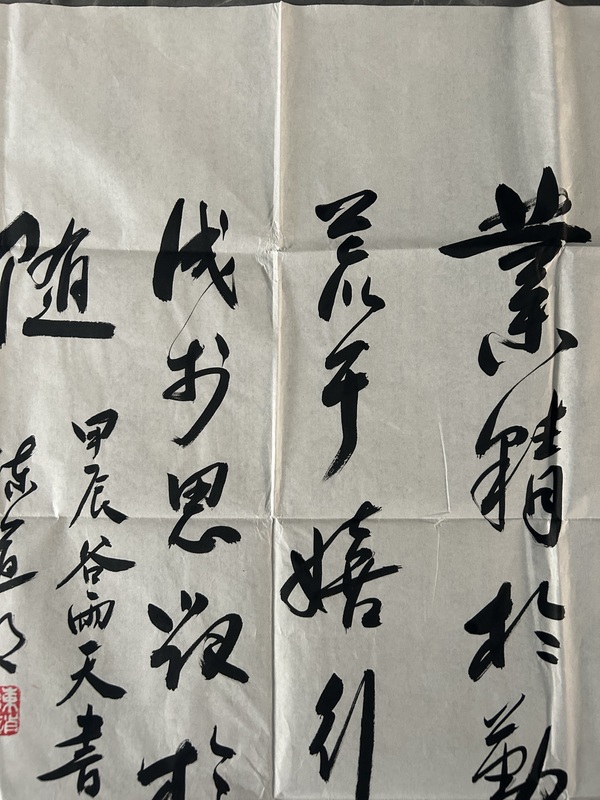 業精於勤
荒于嬉行
成於思毀於
随
甲辰谷雨天書
陈道明